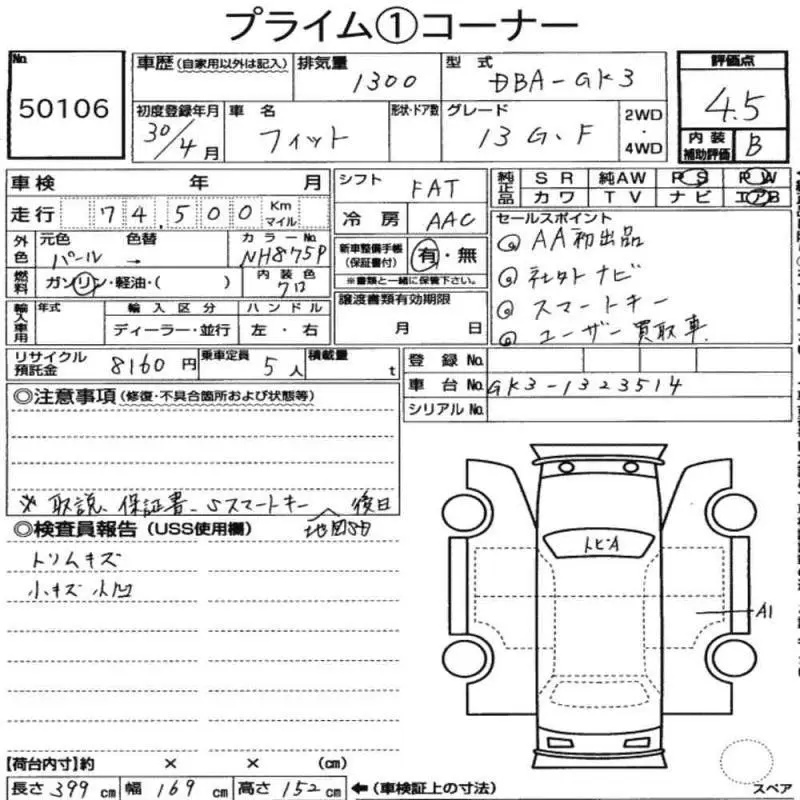 プライム①コーナー
No. 50106
車歴 (自家用以外は記入)
排気量 1300
型式 DBA-GK3
評価点 4.5
初度登録年月 30/4月
車名 フィット
形状・ドア数
グレード 13G.F
2WD・4WD
内装補助評価 B
車検 年 月
シフト FAT
純正品 SR 純AW PS PW
カワ TV ナビ エアB
走行 74,500 Km マイル
冷房 AAC
セールスポイント
◎AA初出品
◎社外ナビ
◎スマートキー
◎ユーザー買取車
外色 元色 パール 色替 → カラーNo. NH875P
新車整備手帳(保証書付) 有・無
※書類と一緒に保管下さい。
燃料 ガソリン・軽油・( ) 内装色 クロ
譲渡書類有効期限
月 日
輸入車用 年式 輸入区分 ハンドル
ディーラー・並行 左・右
リサイクル預託金 8160円 乗車定員 5人 積載量 t
登録No.
車台No. GK3-1323514
シリアルNo.
◎注意事項 (修復・不具合箇所および状態等)
※取説、保証書、Sスマートキー 後日
地図SD
◎検査員報告 (USS使用欄)
トリムキズ
小キズ 小凹
トビA
A1
【荷台内寸】約 × × (cm)
長さ 399 cm 幅 169 cm 高さ 152 cm ←(車検証上の寸法)
スペア